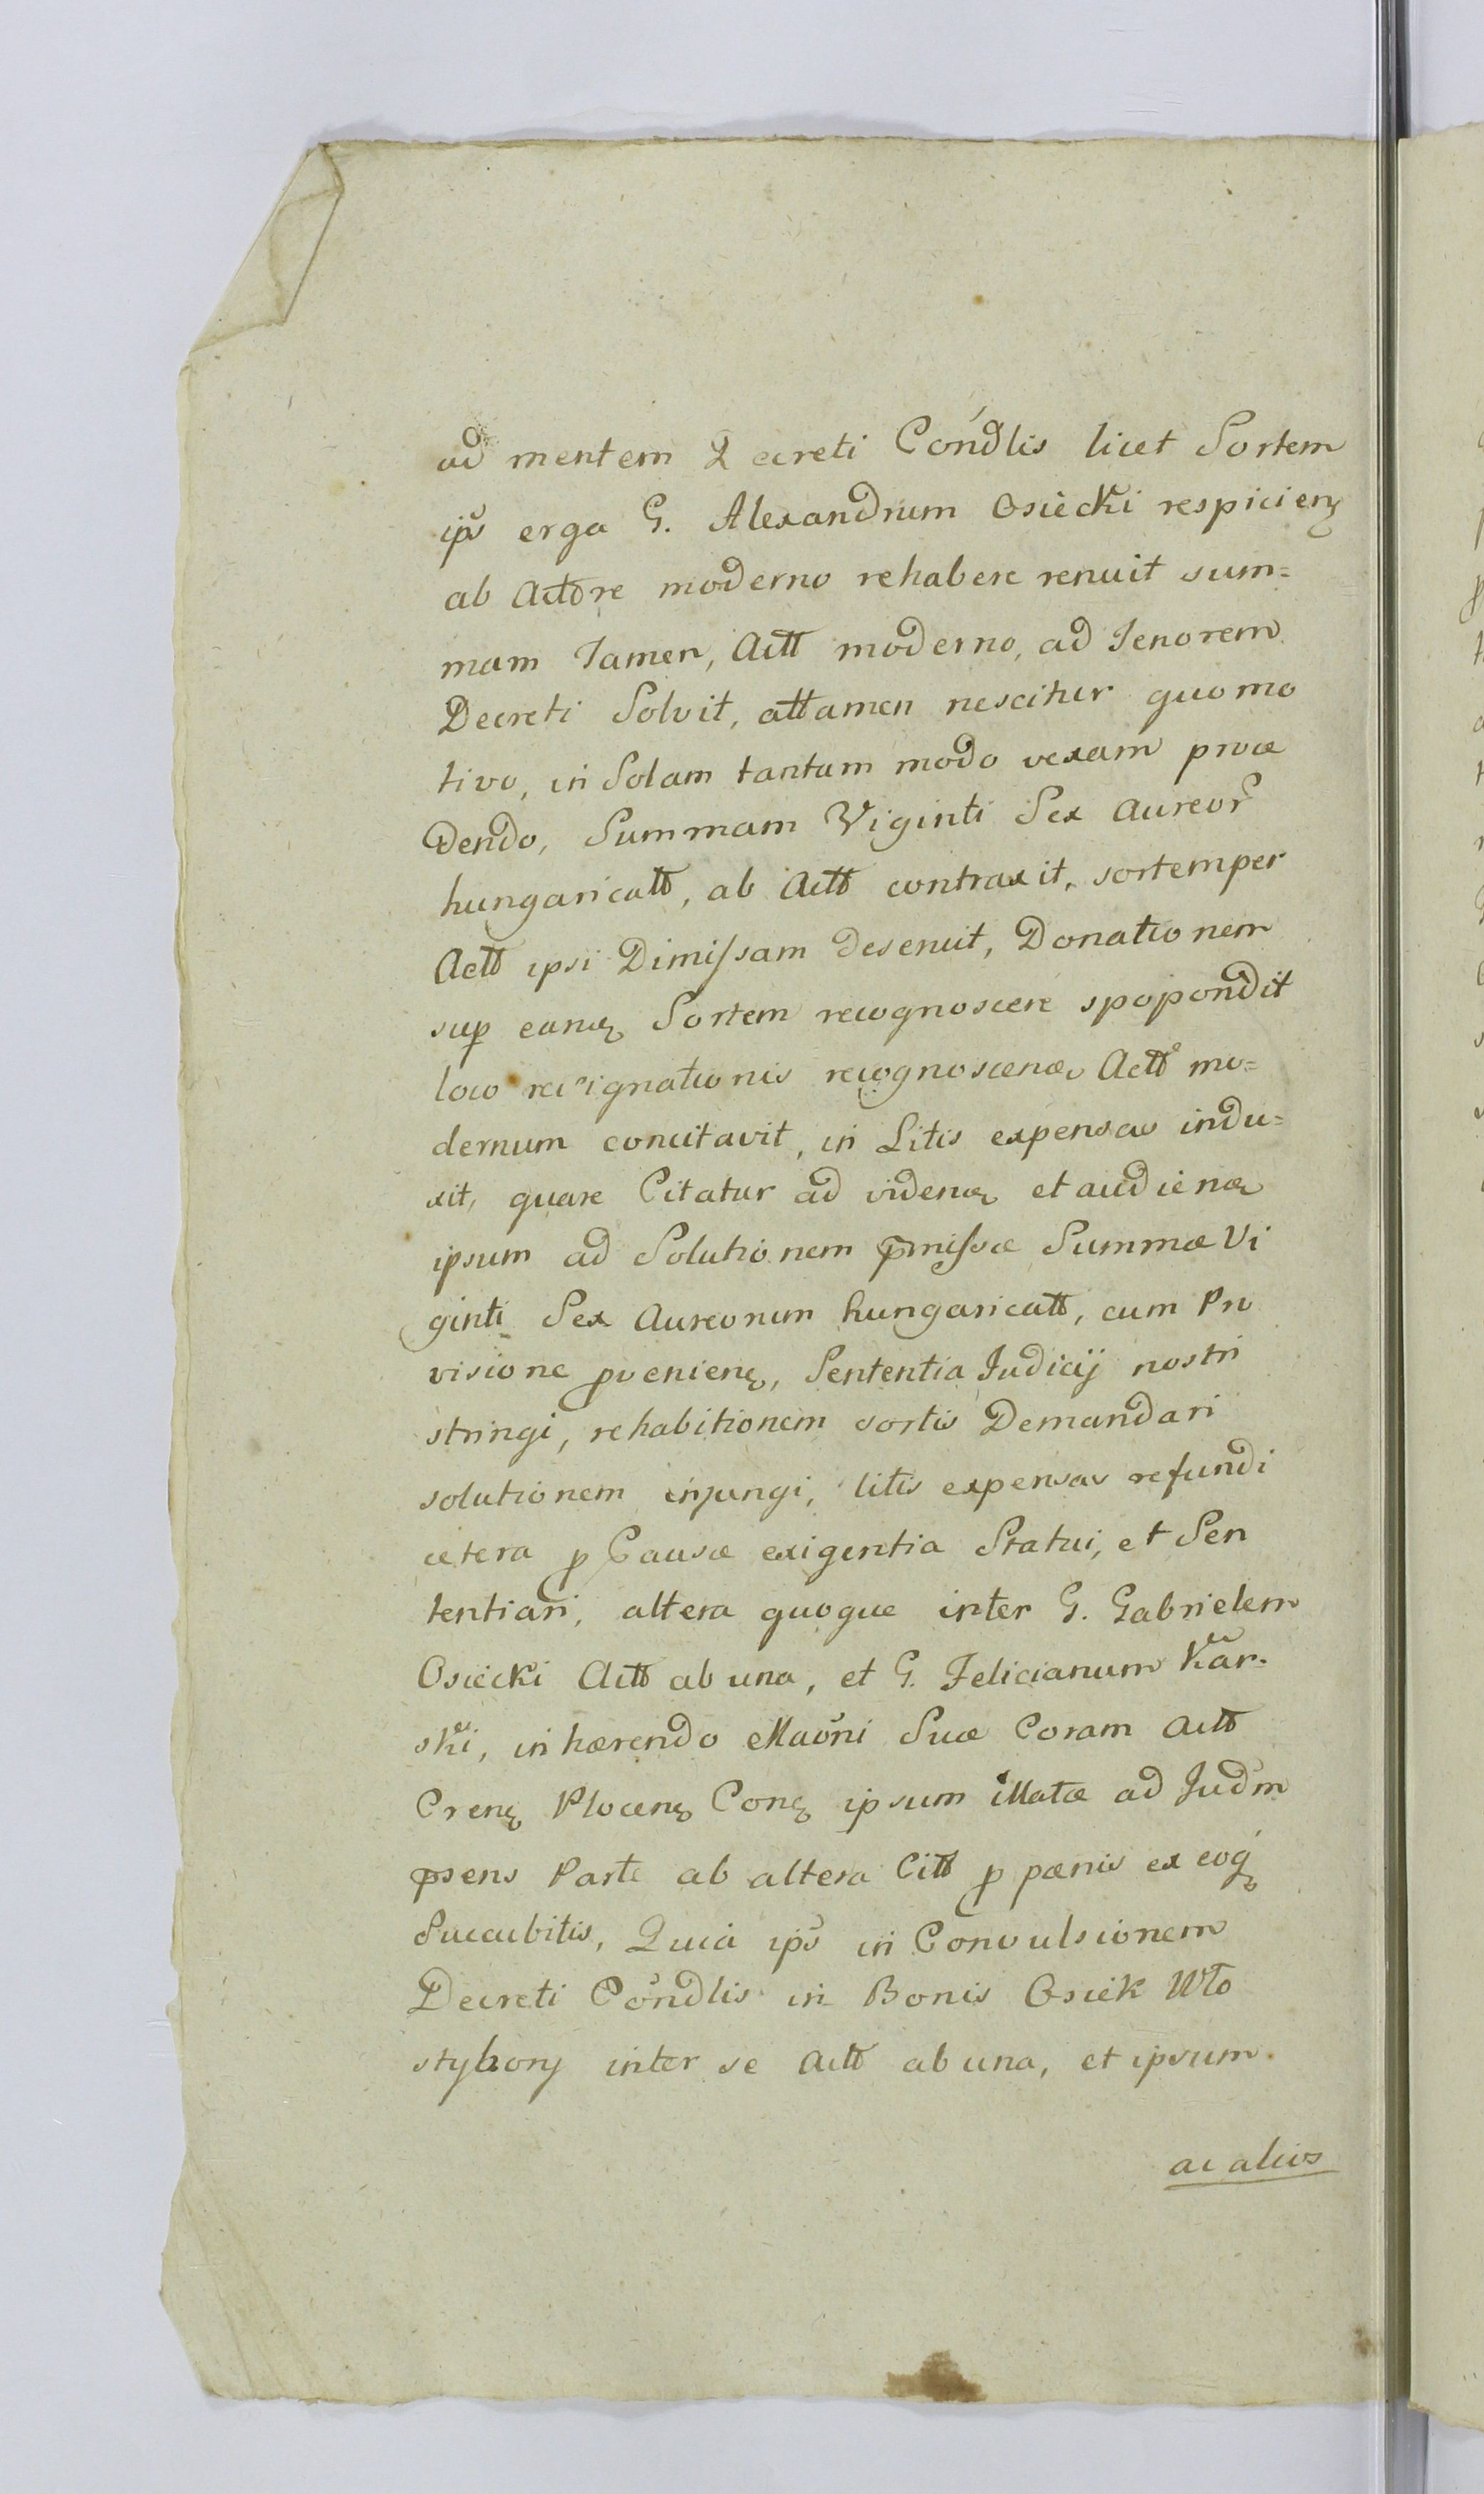 ad mentem Decreti Condlis licet Sortem
ips erga G. Alexandrum Osiecki respicienꝫ
ab Actore moderno rehabere renuit sum=
mam Tamen, Actt moderno, ad Tenorem
Decreti Solvit, attamen nescitur quo mo
tivo, in Solam tantum modo vexam proce
dendo, Summam Viginti Sex Aureor
hungaricatt, ab Actt contraxit, sortem per
Actt ipsi Dimissam deseruit, Donationem
sup eanꝫ Sortem recognoscere spopondit
loco resignationis recognoscenꝫ Actt mo=
dernum concitavit, in Litis expensas indu=
xit, quare Citatur ad videnꝫ et audienꝫ
ipsum ad Solutionem pmissæ Summæ Vi
ginti Sex Aureorum hungaricatt, cum Pro
visione pvenienꝫ, Sententia Judicij nostri
stringi, rehabitionem sortis Demandari
solutionem injungi, litis expensas refundi
cetera p Causæ exigentia Statui, et Sen
tentiari, altera quoque inter G. Gabrielem
Osiecki Actt ab una, et G. Felicianum Kar-
ski, inhærendo Maōni Suæ Coram Actt
Crenꝫ Plocenꝫ Conꝫ ipsum illatæ ad Judm
psens Parte ab altera Citt p pænis ex eoqꝫ
Succubitis, Quia ips in Convulsionem
Decreti Condlis in Bonis Osiek Wło
stybory inter se Actt ab una, et ipsum
ac alios